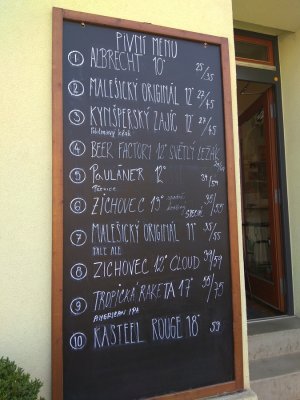 PIVNÍ MENU
1 ALBRECHT 10° 25/35
2 MALEŠICKÝ ORIGINÁL 12° 27/45
3 KYNŠPERSKÝ ZAJÍC 12° 27/45
4 BEER FACTORY 12° SVĚTLÝ LEŽÁK
5 PAULÁNER 12° 39/59
PŠENICE
6 ZICHOVEC 15° SPECIÁL 35/55
7 MALEŠICKÝ ORIGINÁL 11° 35/55
PALE ALE
8 ZICHOVEC 12° CLOUD 39/59
9 TROPICKÁ RAKETA 17° 55/75
AMERICAN IPA
10 KASTEEL ROUGE 18° 59